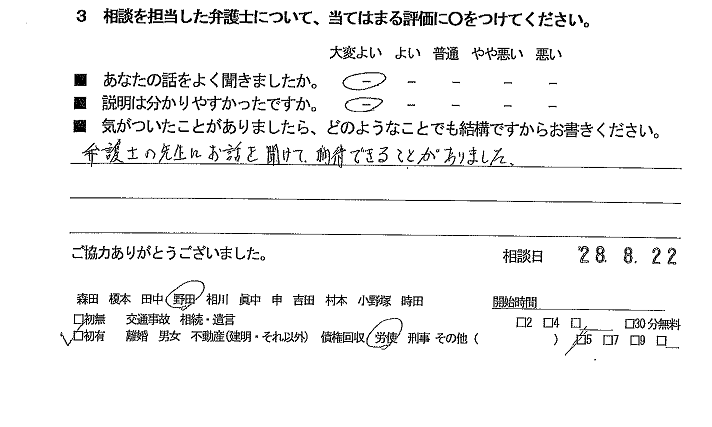 3 相談を担当した弁護士について、当てはまる評価に○をつけてください。
大変よい よい 普通 やや悪い 悪い
■ あなたの話をよく聞きましたか。 － － － － －
■ 説明は分かりやすかったですか。 － － － － －
■ 気がついたことがありましたら、どのようなことでも結構ですからお書きください。
弁護士の先生にお話を聞けて、期待できることがありました。
ご協力ありがとうございました。 相談日 28. 8. 22
森田 榎本 田中 野田 相川 眞中 申 吉田 村本 小野塚 時田 開始時間
□初無 交通事故 相続・遺言 □2 □4 □__ □30分無料
□初有 離婚 男女 不動産(建明・それ以外) 債権回収 労使 刑事 その他 ( ) □5 □7 □9 □__